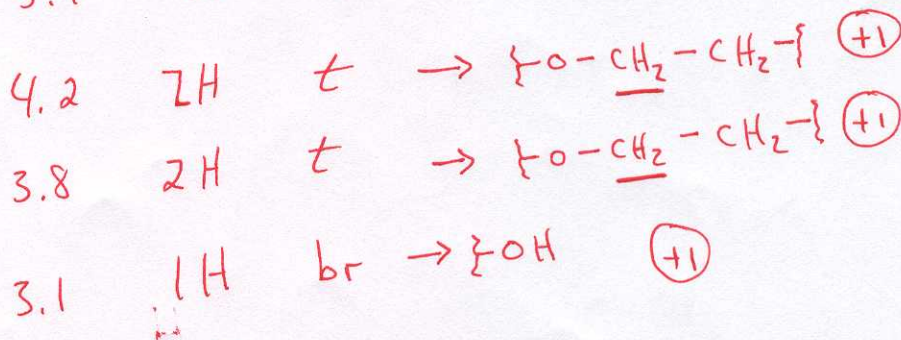 4.2 2H t → }-O-CH₂-CH₂-{ +1
3.8 2H t → }-O-CH₂-CH₂-{ +1
3.1 1H br → }-OH +1